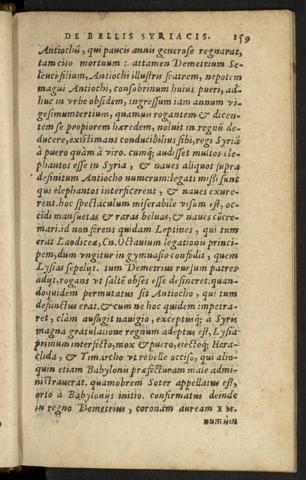 DE BELLIS SYRIACIS. 159
Antiochū, qui paucis annis generose regnarat,
tam cito mortuum: attamen Demetrium Se-
leuci filium, Antiochi illustris fratrem, nepotem
magni Antiochi, consobrinum huius pueri, ad-
huc in vrbe obsidem, ingressum iam annum vi-
gesimumtertium, quamuis rogantem & dicen-
tem se propiorem hæredem, noluit in regnū de-
ducere, existimans conducibilius sibi, regi Syriā
à puero quàm à viro. cumq; audisset multos ele-
phantos esse in Syria, & naues aliquot supra
definitum Antiocho numerum: legati missi sunt
qui elephantos interficerent, & naues exure-
rent. hoc spectaculum miserabile visum est, oc-
cidi mansuetas & raras beluas, & naues cōcre-
mari. id non ferens quidam Leptines, qui tum
erat Laodiceæ, Cn. Octauium legationis princi-
pem, dum vngitur in gymnasio confodit, quem
Lysias sepelijt. tum Demetrius rursum patres
adijt, rogans vt saltē obses esse desineret: quan-
doquidem permutatus sit Antiocho, qui tum
defunctus erat. & cum ne hoc quidem impetra-
ret, clàm aufugit nauigio, exceptusq; a Syris
magna gratulatione regnum adeptus est, Lysia
primum interfecto, mox & puero, eiectoq; Hera-
clida, & Timarcho vt rebelle occiso, qui alio-
quin etiam Babylonis præfecturam male admi-
nistrauerat. quamobrem Soter appellatus est,
orto à Babylonijs initio. confirmatus deinde
in regno Demetrius, coronam auream XM.
numûm